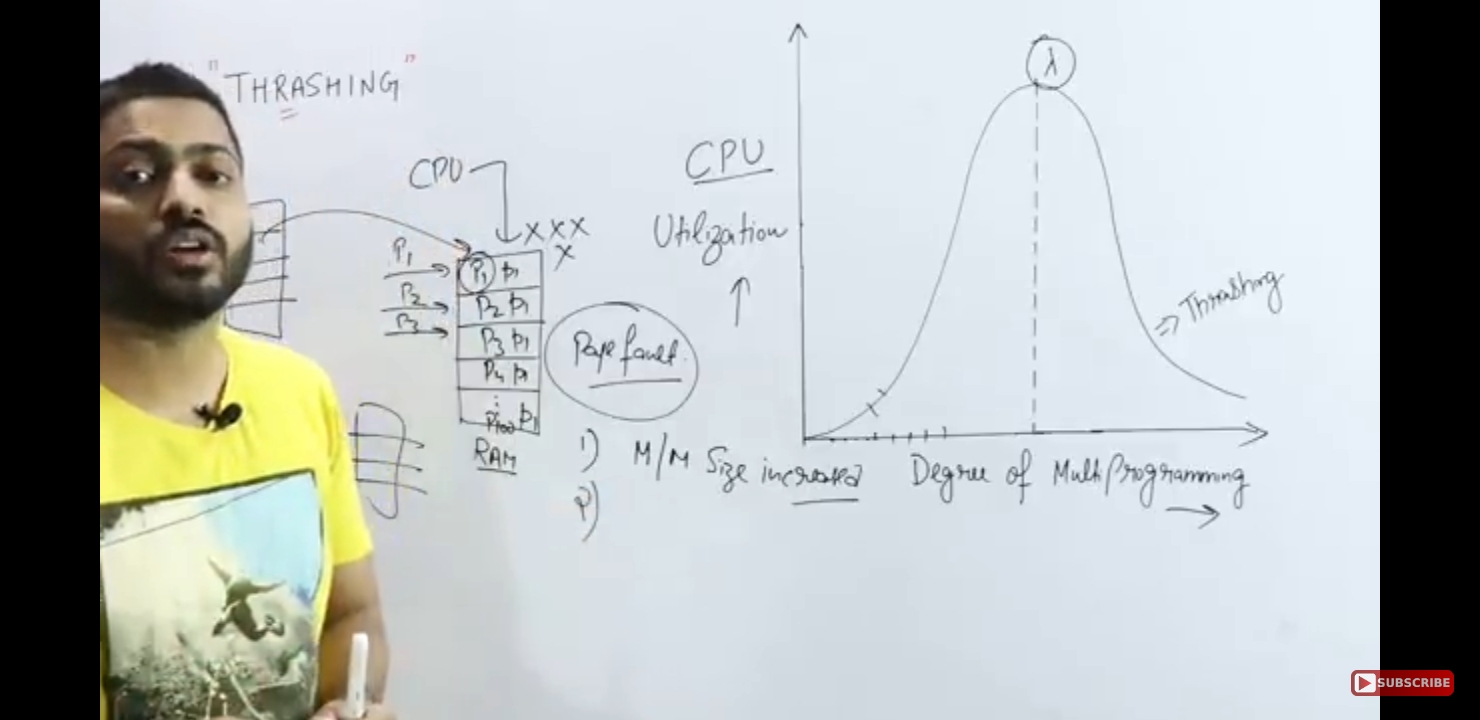 "THRASHING"
CPU
X X X
X
P1
P2
P3
P1 P1
P2 P1
P3 P1
P4 P1
P100 P1
RAM
Page fault.
1) M/M Size increased
2)
CPU
Utilization
λ
⇒ Thrashing
Degree of MultiProgramming
SUBSCRIBE